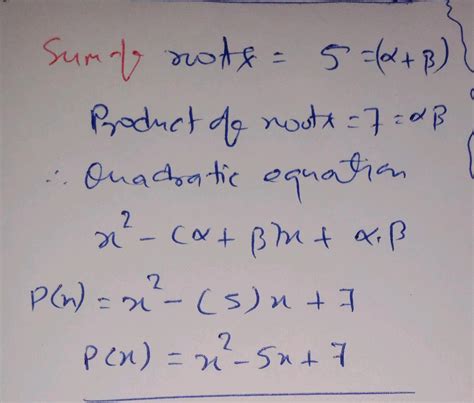 Sum of roots = 5 = (α + β)
Product of roots = 7 = αβ
∴ Quadratic equation
x² - (α + β)x + α.β
P(x) = x² - (5)x + 7
P(x) = x² - 5x + 7